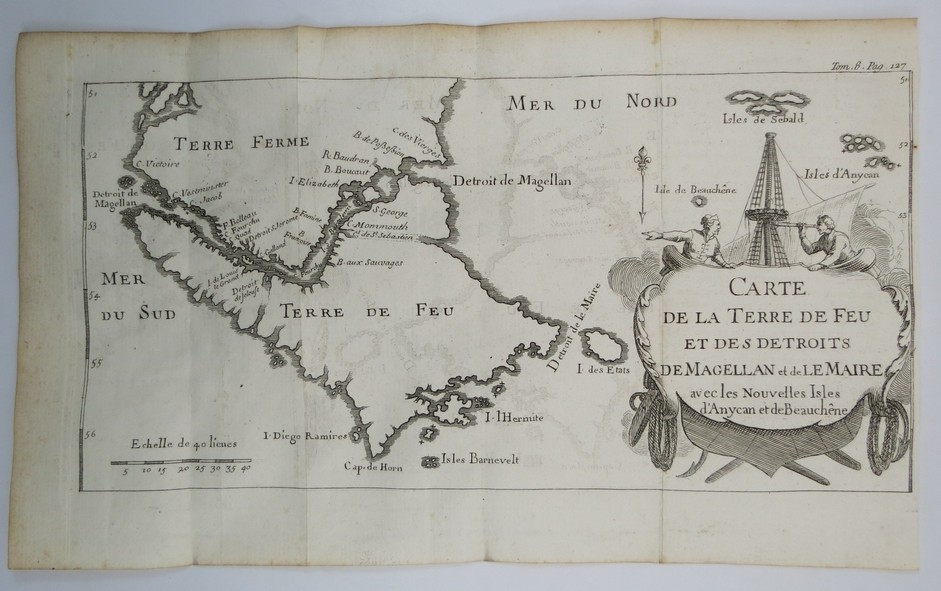 Tom. 8. Pag. 127
51
50
MER DU NORD
Isles de Sebald
TERRE FERME
C. des Vierges
B. de Possession
52
52
R. Baudran
B. Boucaut
C. Victoire
I. Elizabeth
Detroit de Magellan
Isles d'Anycan
Isle de Beauchêne
C. Vestminster
C. Jacob
Detroit de
Magellan
S. George
B. Famine
53
53
C. Monmouth
C.l de S.t Sebastien
F. Belleau
Detroit S. Jerome
B.
Galland
B. aux Sauvages
MER
DU SUD
I. de Louis
le Grand
Detroit
54
TERRE DE FEU
Detroit de le Maire
CARTE
DE LA TERRE DE FEU
ET DES DETROITS
DE MAGELLAN et de LE MAIRE
avec les Nouvelles Isles
d'Anycan et de Beauchêne
55
I. des Etats
I. l'Hermite
56
I. Diego Ramires
Echelle de 40 lieues
5 10 15 20 25 30 35 40
Cap. de Horn
Isles Barnevelt